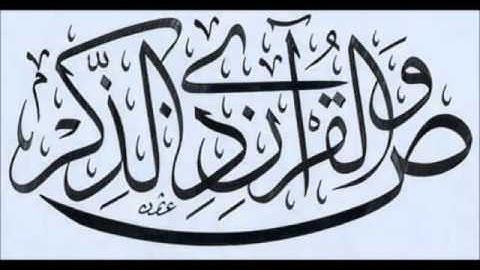 صٓ وَالْقُرْآنِ ذِي الذِّكْرِ